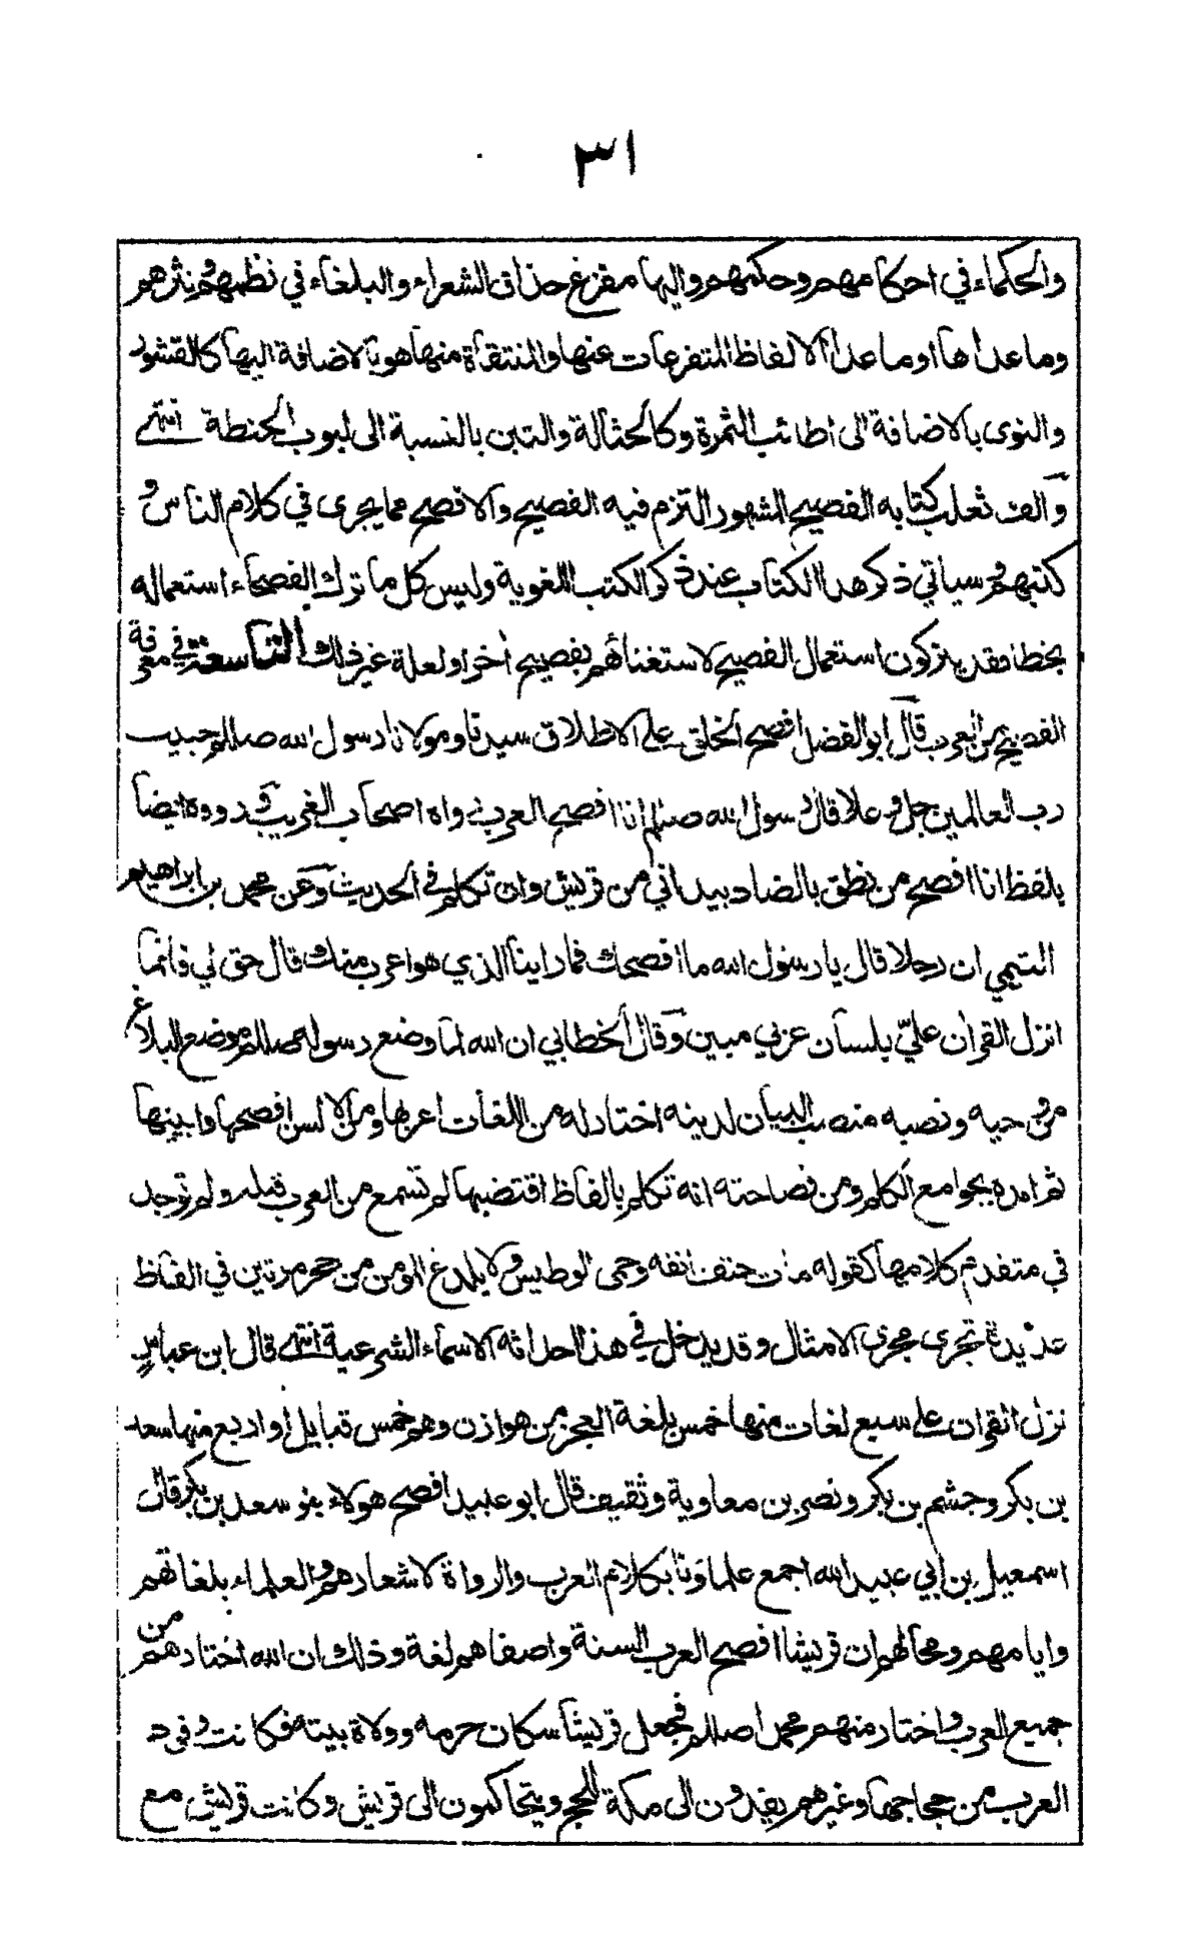 ٣١
والحكماء في احكامهم وحكمهم واليها مفزع حذاق الشعراء والبلغاء في نظمهم ونثرهم
وما عداها وما عدا الالفاظ المتفرعات عنها والمنتقاة منها هو بالاضافة اليها كالقشور
والنوى بالاضافة الى اطائب الثمرة وكالحثالة والتبن بالنسبة الى لبوب الحنطة انتهى
والف ثعلب كتابه الفصيح المشهور التزم فيه الفصيح والافصح مما يجري في كلام الناس و
كتبهم وسياتي ذكر هذا الكتاب عند ذكر الكتب اللغوية وليس كل ما ترك الفصحاء استعماله
بخطا فقد يتركون استعمال الفصيح لاستغنائهم بفصيح اخر او لعلة غير ذلك التاسعة في معرفة
الفصيح من العرب قال ابو الفضل افصح الخلق على الاطلاق سيدنا ومولانا رسول الله صللم حبيب
رب العالمين جل وعلا قال رسول الله صللم انا افصح العرب رواه اصحاب الغريب ورووه ايضا
بلفظ انا افصح من نطق بالضاد بيد اني من قريش وان تكلم في الحديث وعن محمد بن ابراهيم
التيمي ان رجلا قال يا رسول الله ما افصحك فما راينا الذي هو اعرب منك قال حق لي فانما
انزل القرآن عليّ بلسان عربي مبين وقال الخطابي ان الله لما وضع رسوله صللم موضع البلاغ
من وحيه ونصبه منصب البيان لدينه اختار له من اللغات اعربها ومن الالسن افصحها وابينها
ثم امده بجوامع الكلم ومن فصاحته انه تكلم بالفاظ اقتضبها لم تسمع من العرب قبله ولم توجد
في متقدم كلامها كقوله مات حتف انفه وحمى الوطيس ولا يلدغ المومن من جحر مرتين في الفاظ
عديدة تجرى مجرى الامثال وقد يدخل في هذا احداثه الاسماء الشرعية انتهى قال ابن عباس
نزل القران على سبع لغات منها خمس بلغة العجز من هوازن وهم خمس قبايل او اربع منها سعد
بن بكر وجشم بن بكر ونصر بن معاوية وثقيف قال ابو عبيد افصح هولاء بنو سعد بن بكر قال
اسمعيل بن ابي عبيد الله اجمع علماؤنا بكلام العرب والرواة لاشعارهم والعلماء بلغاتهم
وايامهم ومحالهم ان قريشا افصح العرب السنة واصفاهم لغة وذلك ان الله اختارهم من
جميع العرب واختار منهم محمدا صللم فجعل قريشا سكان حرمه وولاة بيته فكانت وفود
العرب من حجاجها وغيرهم يفدون الى مكة للحج ويتحاكمون الى قريش وكانت قريش مع